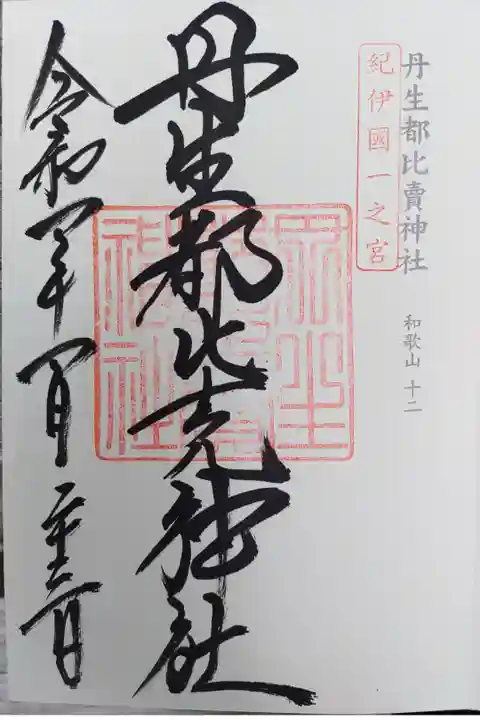 丹生都比賣神社
和歌山 十二
紀伊國一之宮
丹生都比売神社
丹生
神社
令和 年 月二十 日